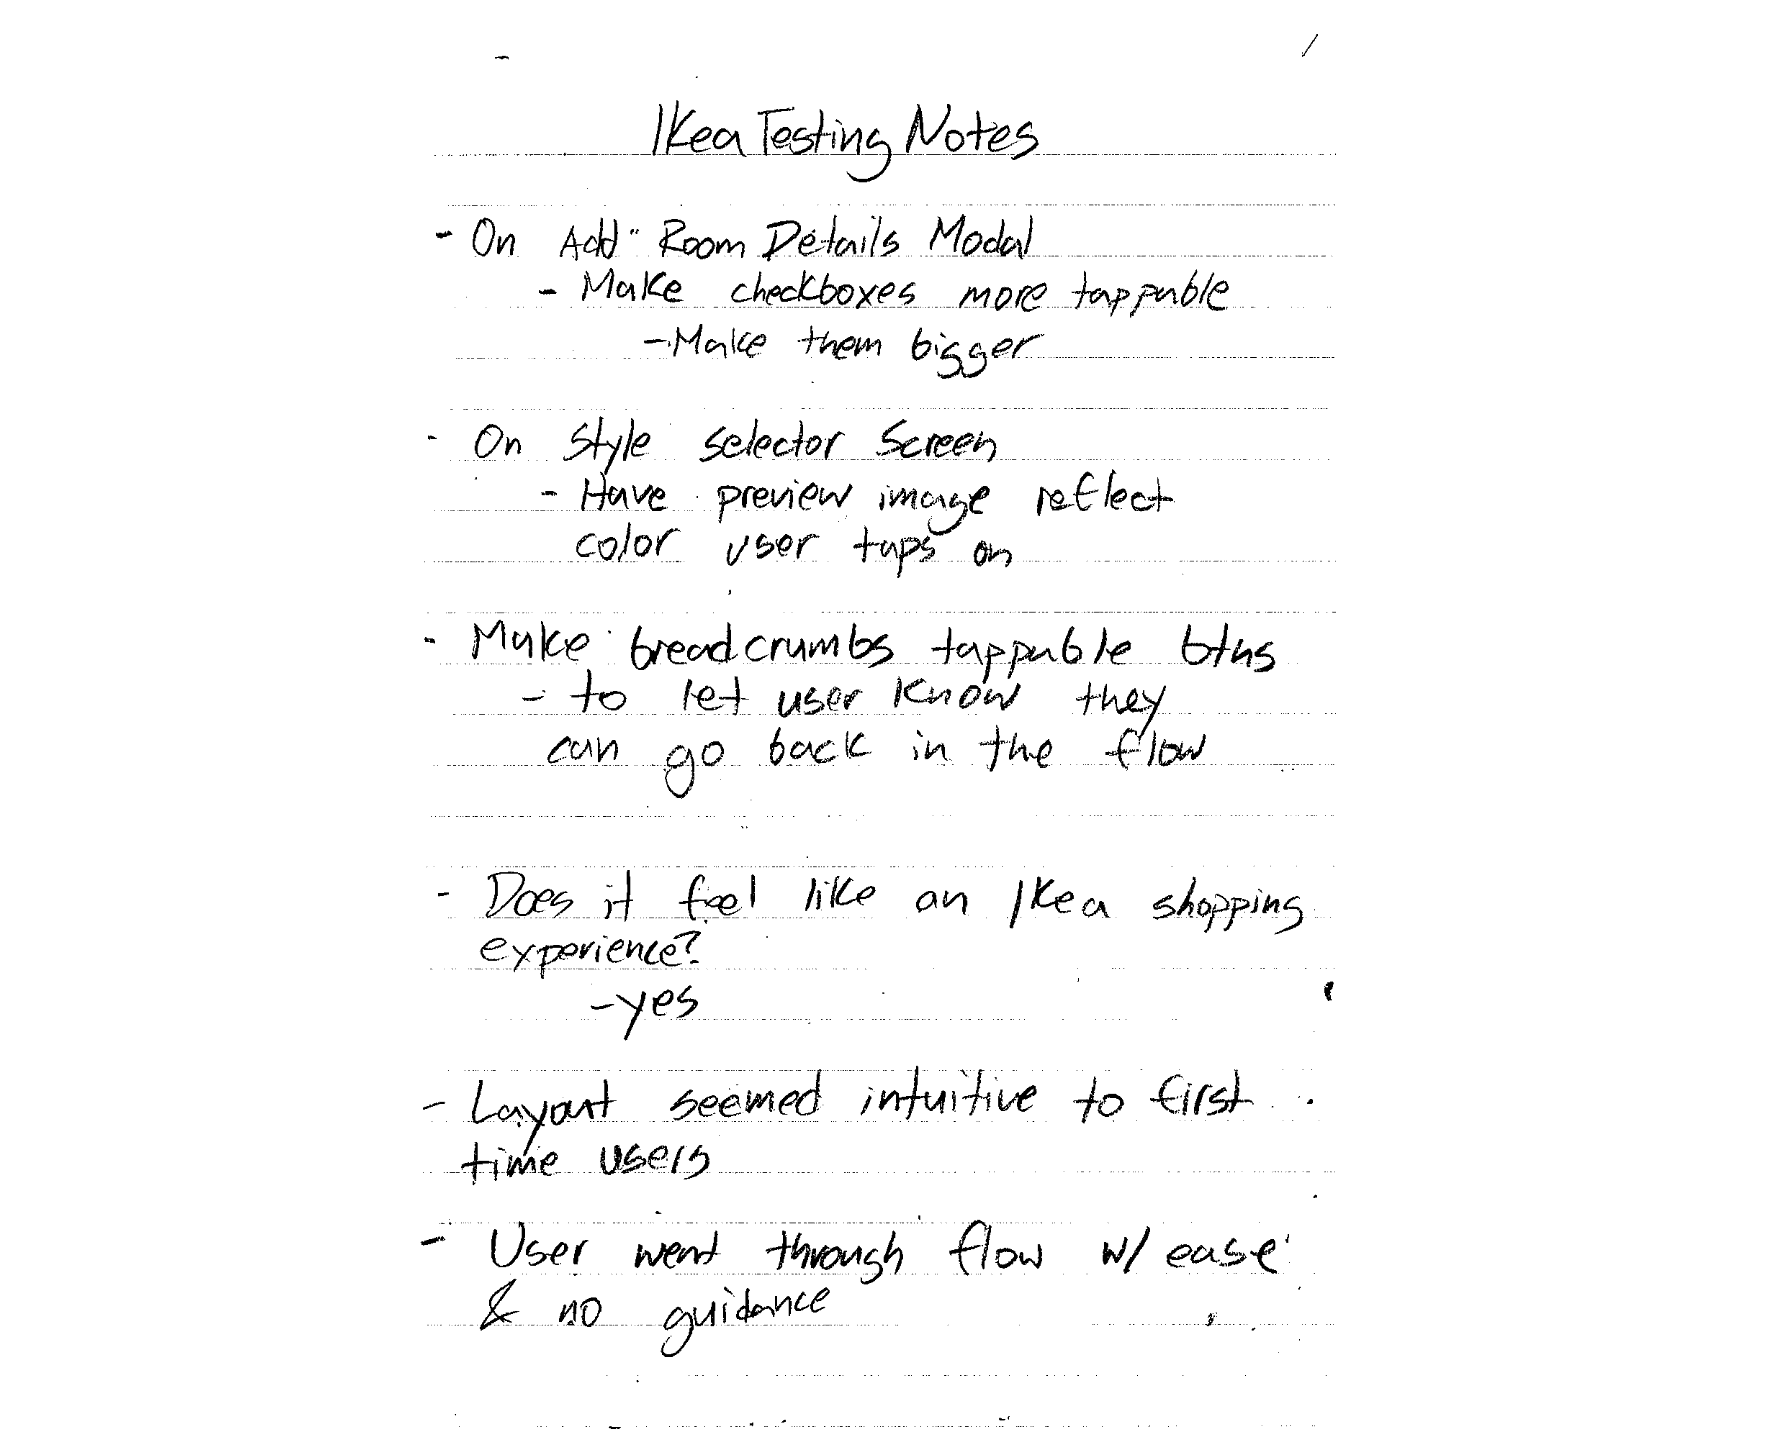 IKea Testing Notes
- On Add" Room Details Modal
- Make checkboxes more tappable
- Make them bigger
- On Style selector Screen
- Have preview image reflect
color user taps on
- Make breadcrumbs tappable btns
- to let user know they
can go back in the flow
- Does it feel like an IKea shopping
experience?
- yes
- Layout seemed intuitive to first
time users
- User went through flow w/ ease
& no guidance